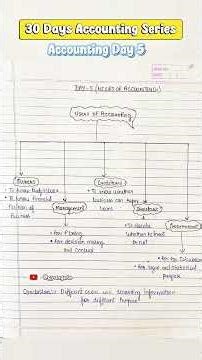 30 Days Accounting Series
Accounting Day 5
DAY-5 (USERS OF ACCOUNTING)
Users of Accounting
Owners
Management
Creditors
Investors
Government
- For Planning
- For decision making and
Control
- To know whether
business can repay
loans
- To decide
whether to invest
or not
- For Tax Calculation
- For legal and statistical
purpose
Conclusion:- Different users use accounting information
for different Purpose